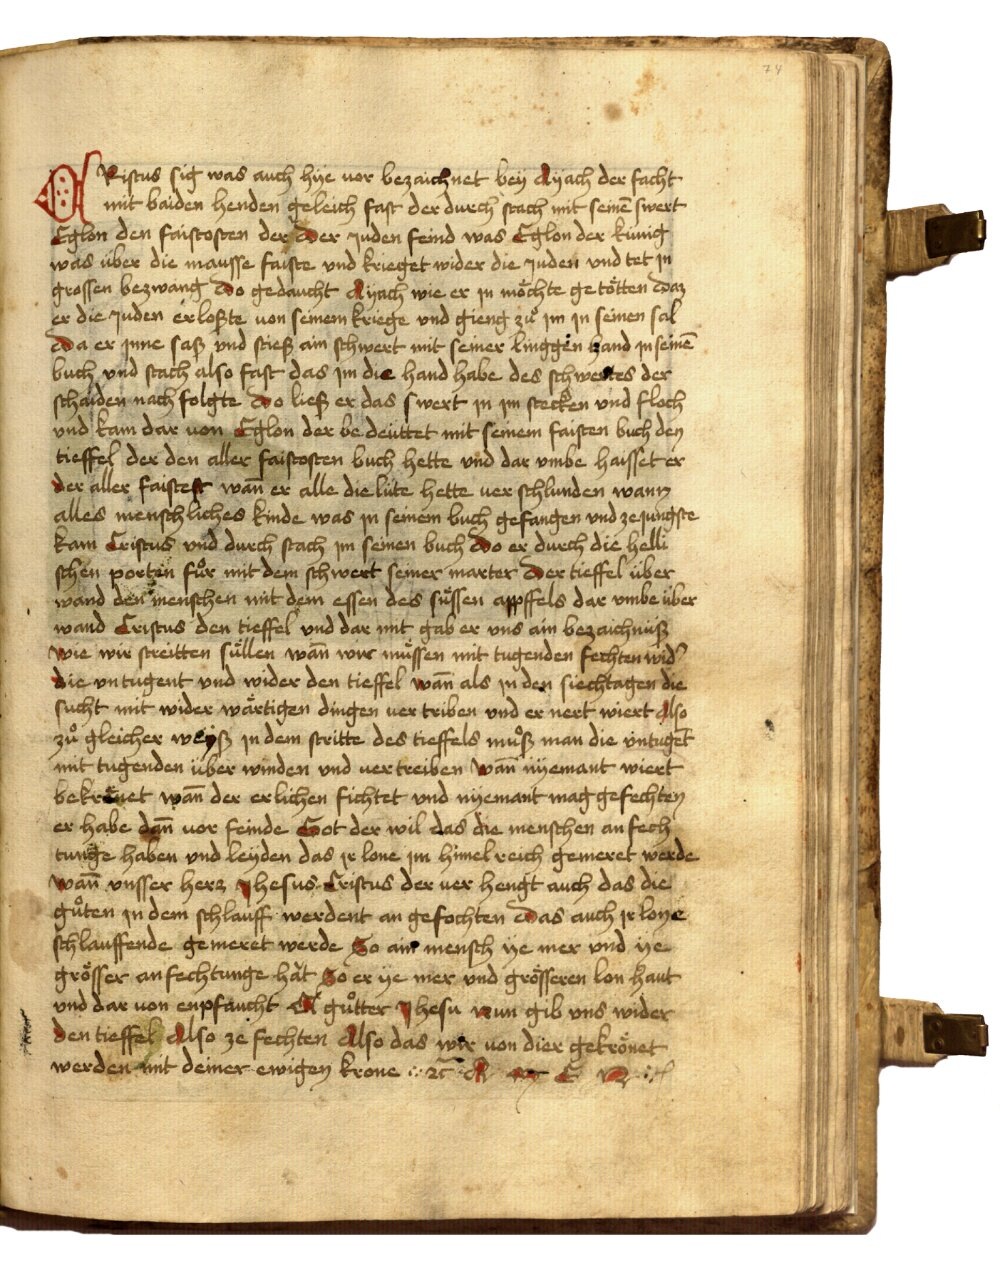 74
CRistus sig was auch hÿe vor bezaichnet beÿ Aÿach der facht
mit baiden henden geleich fast der durch stach mit seinē swert
Eglon den faistosten der Der Juden feind was Eglon der künig
was über die mausse faiste vnd krieget wider die Juden vnd tet in
grossen bezwang Do gedaucht Aÿach wie er in möchte getötten Daz
er die Juden erloßte von seinem kriege vnd gieng zů im in seinen sal
Da er Inne saß vnd stieß ain schwert mit seiner linggen hand in seinē
buch vnd stach also fast das im die hand habe des schwertes der
schaiden nach folgte Do ließ er das swert in im stecken vnd floch
vnd kam dar von Eglon der bedeüttet mit seinem faisten buch den
tieffel der den aller faistosten buch hette vnd dar vmbe haisset er
der aller faistest wan̄ er alle die lüte hette ver schlunden wann
alles menschliches kinde was in seinem buch gefangen vnd ze jungste
kam Cristus vnd durch stach im seinen buch Do er durch die helli
schen porten fůr mit dem schwert seiner marter Der tieffel über
wand den menschen mit dem essen des süssen appffels dar vmbe über
wand Cristus den tieffel vnd dar mit gab er vns ain bezaichnüß
wie wir streitten süllen wan̄ wir müssen mit tugenden fechten wid᾽
die vntugent vnd wider den tieffel wan̄ als in den siechtagen die
sucht mit wider wärtigen dingen ver triben vnd er nert wiert Also
zů gleicher weÿß in dem stritte des tieffels můß man die vntugēt
mit tugenden über winden vnd vertreiben wan̄ nÿemant wiert
bekrönet wan̄ der erlichen fichtet vnd nÿemant mag gefechten
er habe dan̄ vor feinde Got der wil das die menschen an fech
tunge haben vnd leÿden das ir lone im himelreich gemeret werde
wan̄ vnsser herz Jhesus Cristus der ver hengt auch das die
gůten in dem schlauff werdent an gefochten Das auch ir lone
schlauffende gemeret werde So ain mensch ÿe mer vnd ÿe
grösser anfechtunge hät So er ÿe mer vnd grösseren lon haut
vnd dar von enpfaucht A gůtter Jhesu nun gib vns wider
den tieffel Also ze fechten Also das wir von dier gekrönet
werden mit deiner ewigen krone A M E N